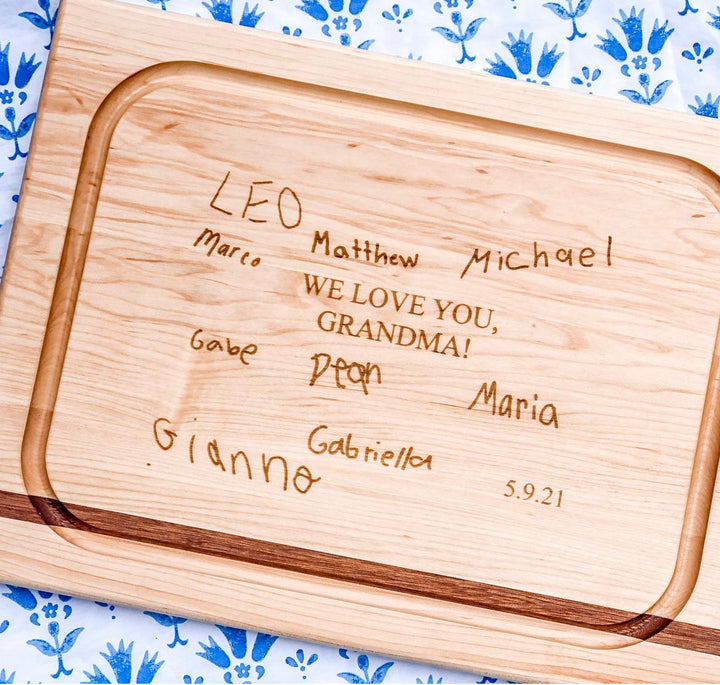 LEO
Marco Matthew Michael
WE LOVE YOU,
GRANDMA!
Gabe Dean Maria
Gianno Gabriella
5.9.21